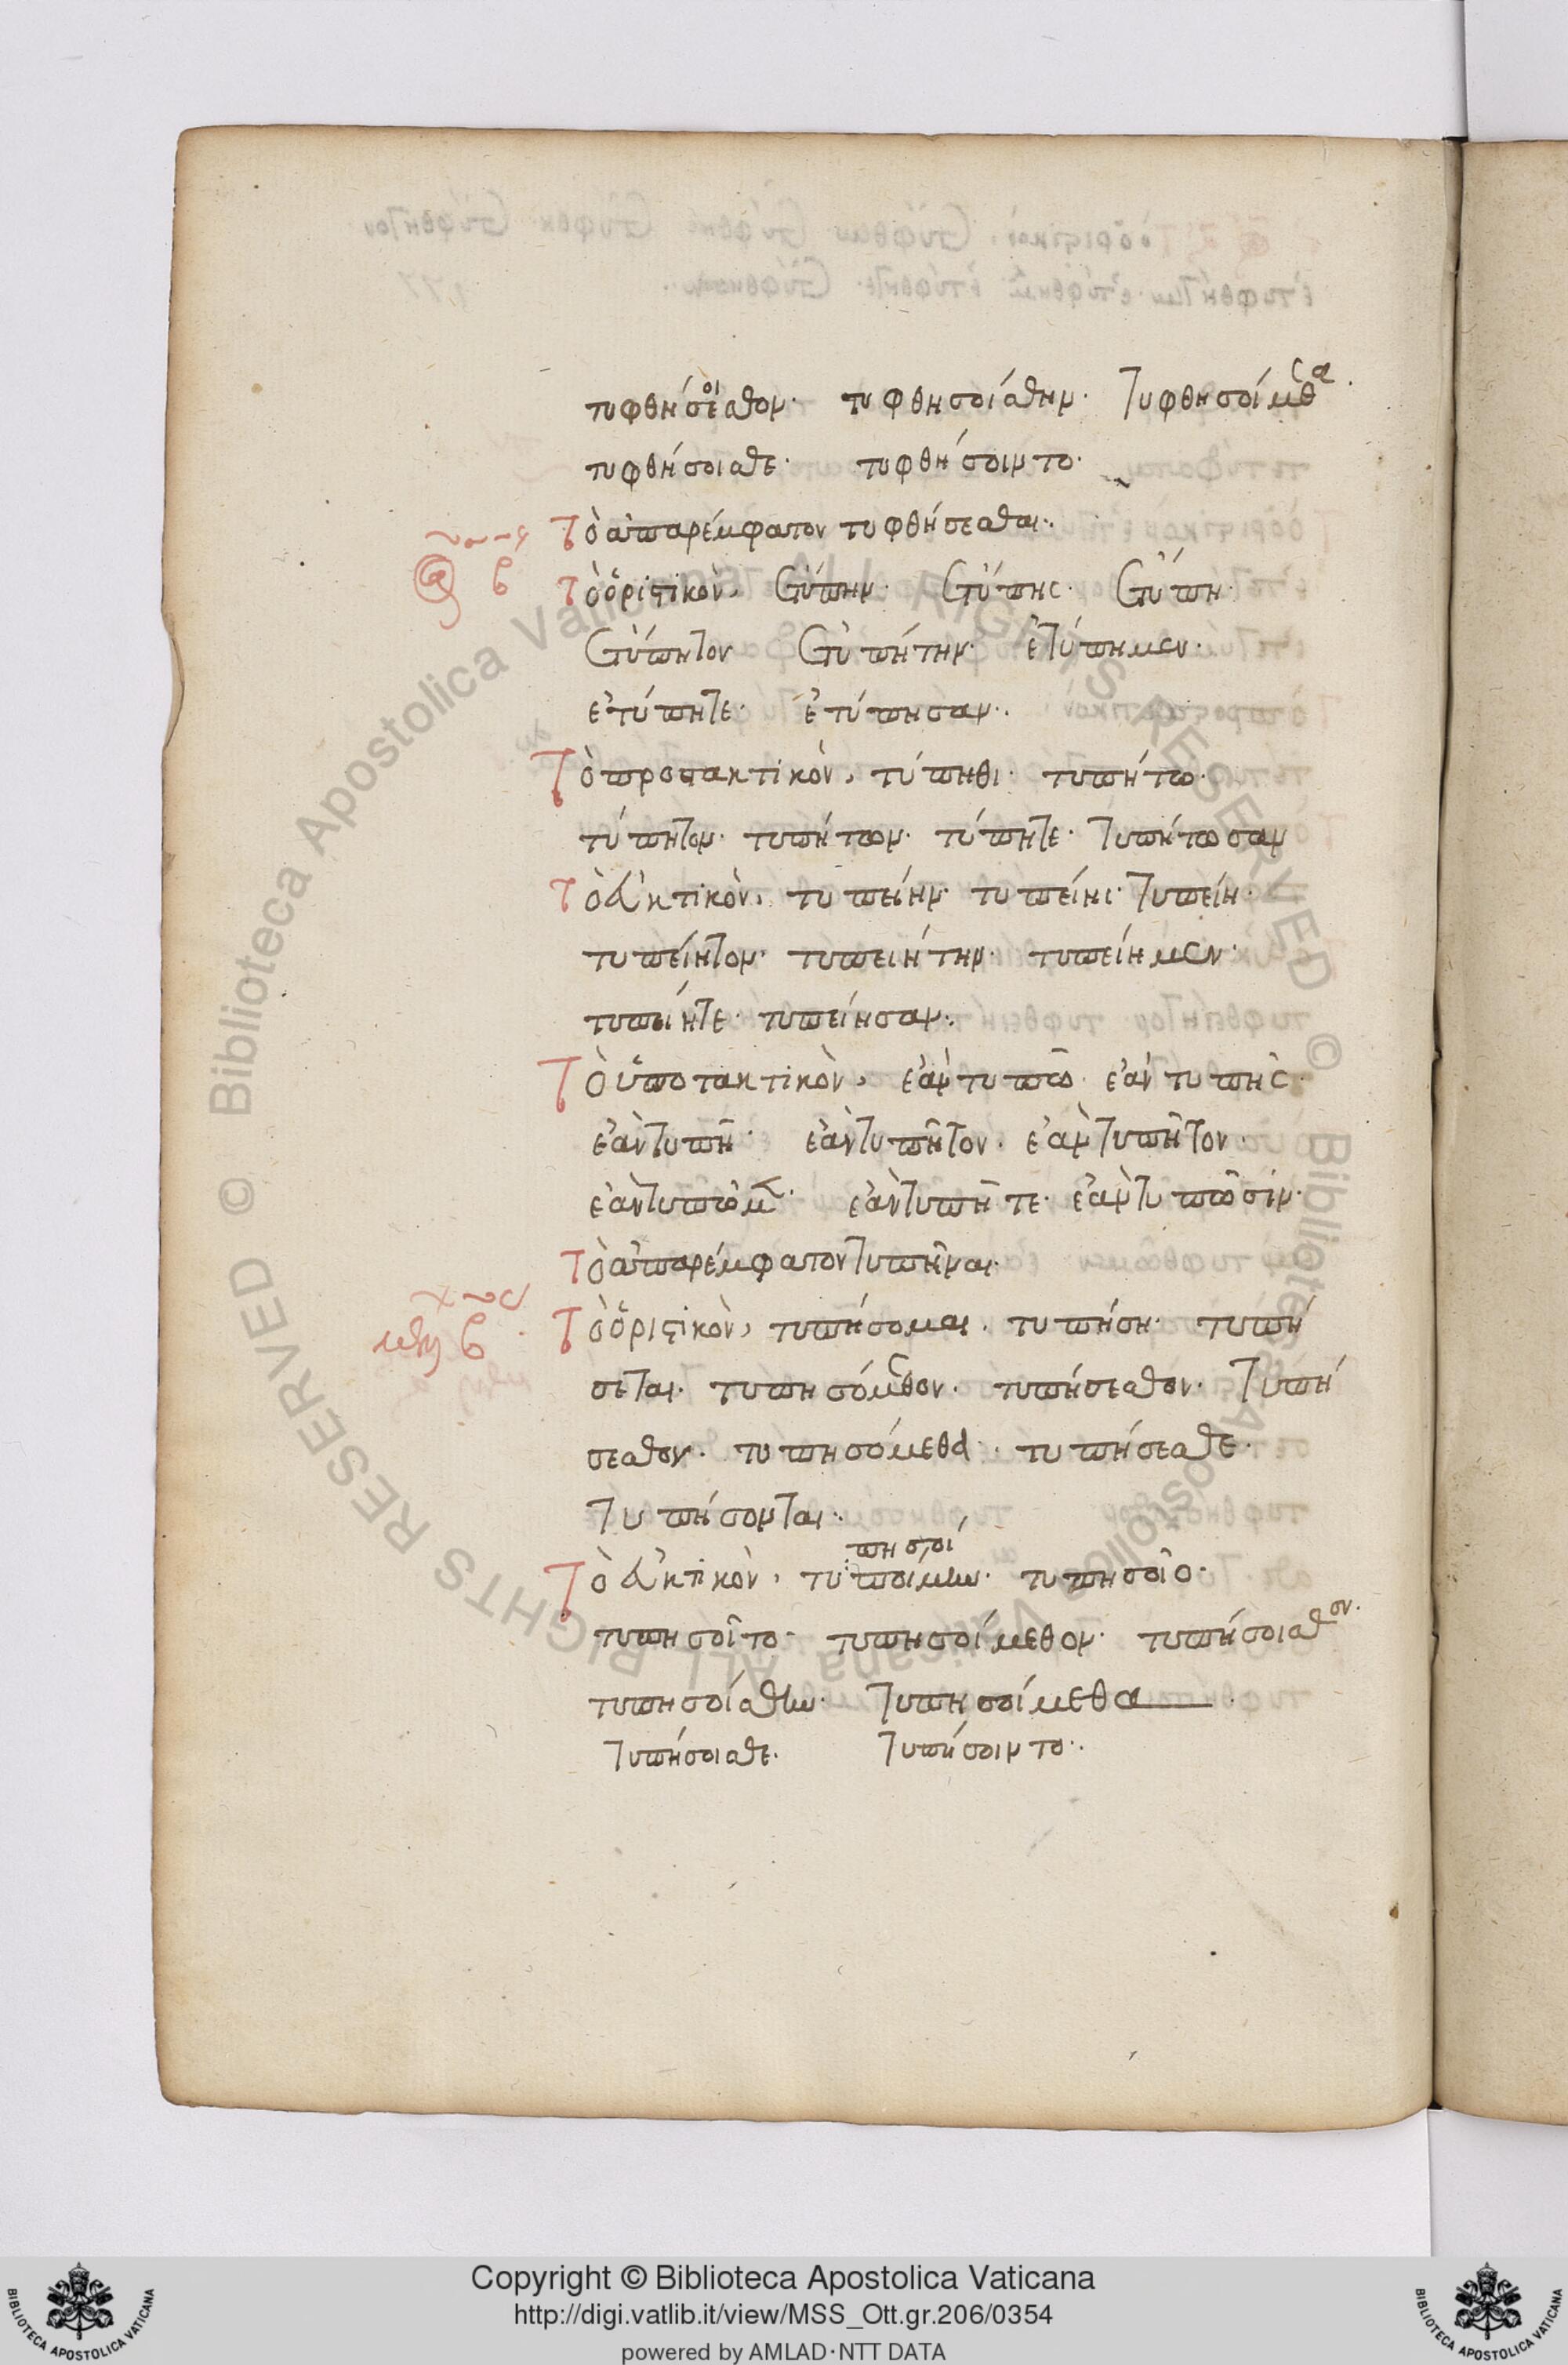 τυφθήσοισθον· τυφθησοίσθην· τυφθησοίμεθα.
τυφθήσοισθε· τυφθήσοιντο·
Τὸ ἀπαρέμφατον τυφθήσεσθαι.
β Τὸ ὁριστικὸν, ἐτύπην· ἐτύπης· ἐτύπη·
ἐτύπητον ἐτυπήτην· ἐτύπημεν·
ἐτύπητε· ἐτύπησαν.
Τὸ προστακτικὸν, τύπηθι· τυπήτω·
τύπητον· τυπήτων· τύπητε· τυπήτωσαν
Τὸ εὐκτικὸν, τυπείην· τυπείης· τυπείη·
τυπείητον· τυπειήτην· τυπείημεν·
τυπείητε· τυπείησαν.
Τὸ ὑποτακτικὸν, ἐὰν τυπῶ· ἐὰν τυπῆς·
ἐὰν τυπῆ· ἐὰν τυπῆτον· ἐὰν τυπῆτον·
ἐὰν τυπῶμεν· ἐὰν τυπῆτε· ἐὰν τυπῶσιν·
Τὸ ἀπαρέμφατον τυπῆναι·
β Τὸ ὁριστικὸν, τυπήσομαι· τυπήση· τυπή
σεται· τυπησόμεθον· τυπήσεσθον· τυπή
σεσθον· τυπησόμεθα· τυπήσεσθε·
τυπήσονται·
πησοί
Τὸ εὐκτικὸν, τυποίμην· τυπησοῖο·
τυπησοῖτο· τυπησοίμεθον· τυπήσοισθον·
τυπησοίσθην· τυπησοίμεθα
τυπήσοισθε· τυπήσοιντο·
Biblioteca Apostolica Vaticana ALL RIGHTS RESERVED ©
Biblioteca Apostolica Vaticana ALL RIGHTS RESERVED ©
Copyright © Biblioteca Apostolica Vaticana
http://digi.vatlib.it/view/MSS_Ott.gr.206/0354
powered by AMLAD·NTT DATA
BIBLIOTECA APOSTOLICA VATICANA
BIBLIOTECA APOSTOLICA VATICANA